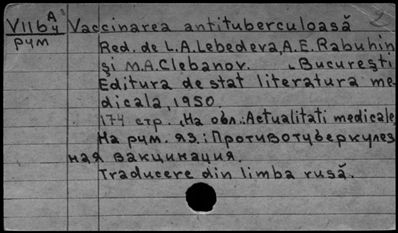 VIIб A Vaccinarea antituberculoasă
4
рум Red. de L.A.Lebedeva, A.E.Rabuhin
şi M.A.Clebanov. Bucureşti
Editura de stat literatura me-
dicala, 1950.
174 стр. На обл.: Actualitati medicale
На рум. яз.: Противотуберкулез-
ная вакцинация.
Traducere din limba rusă.